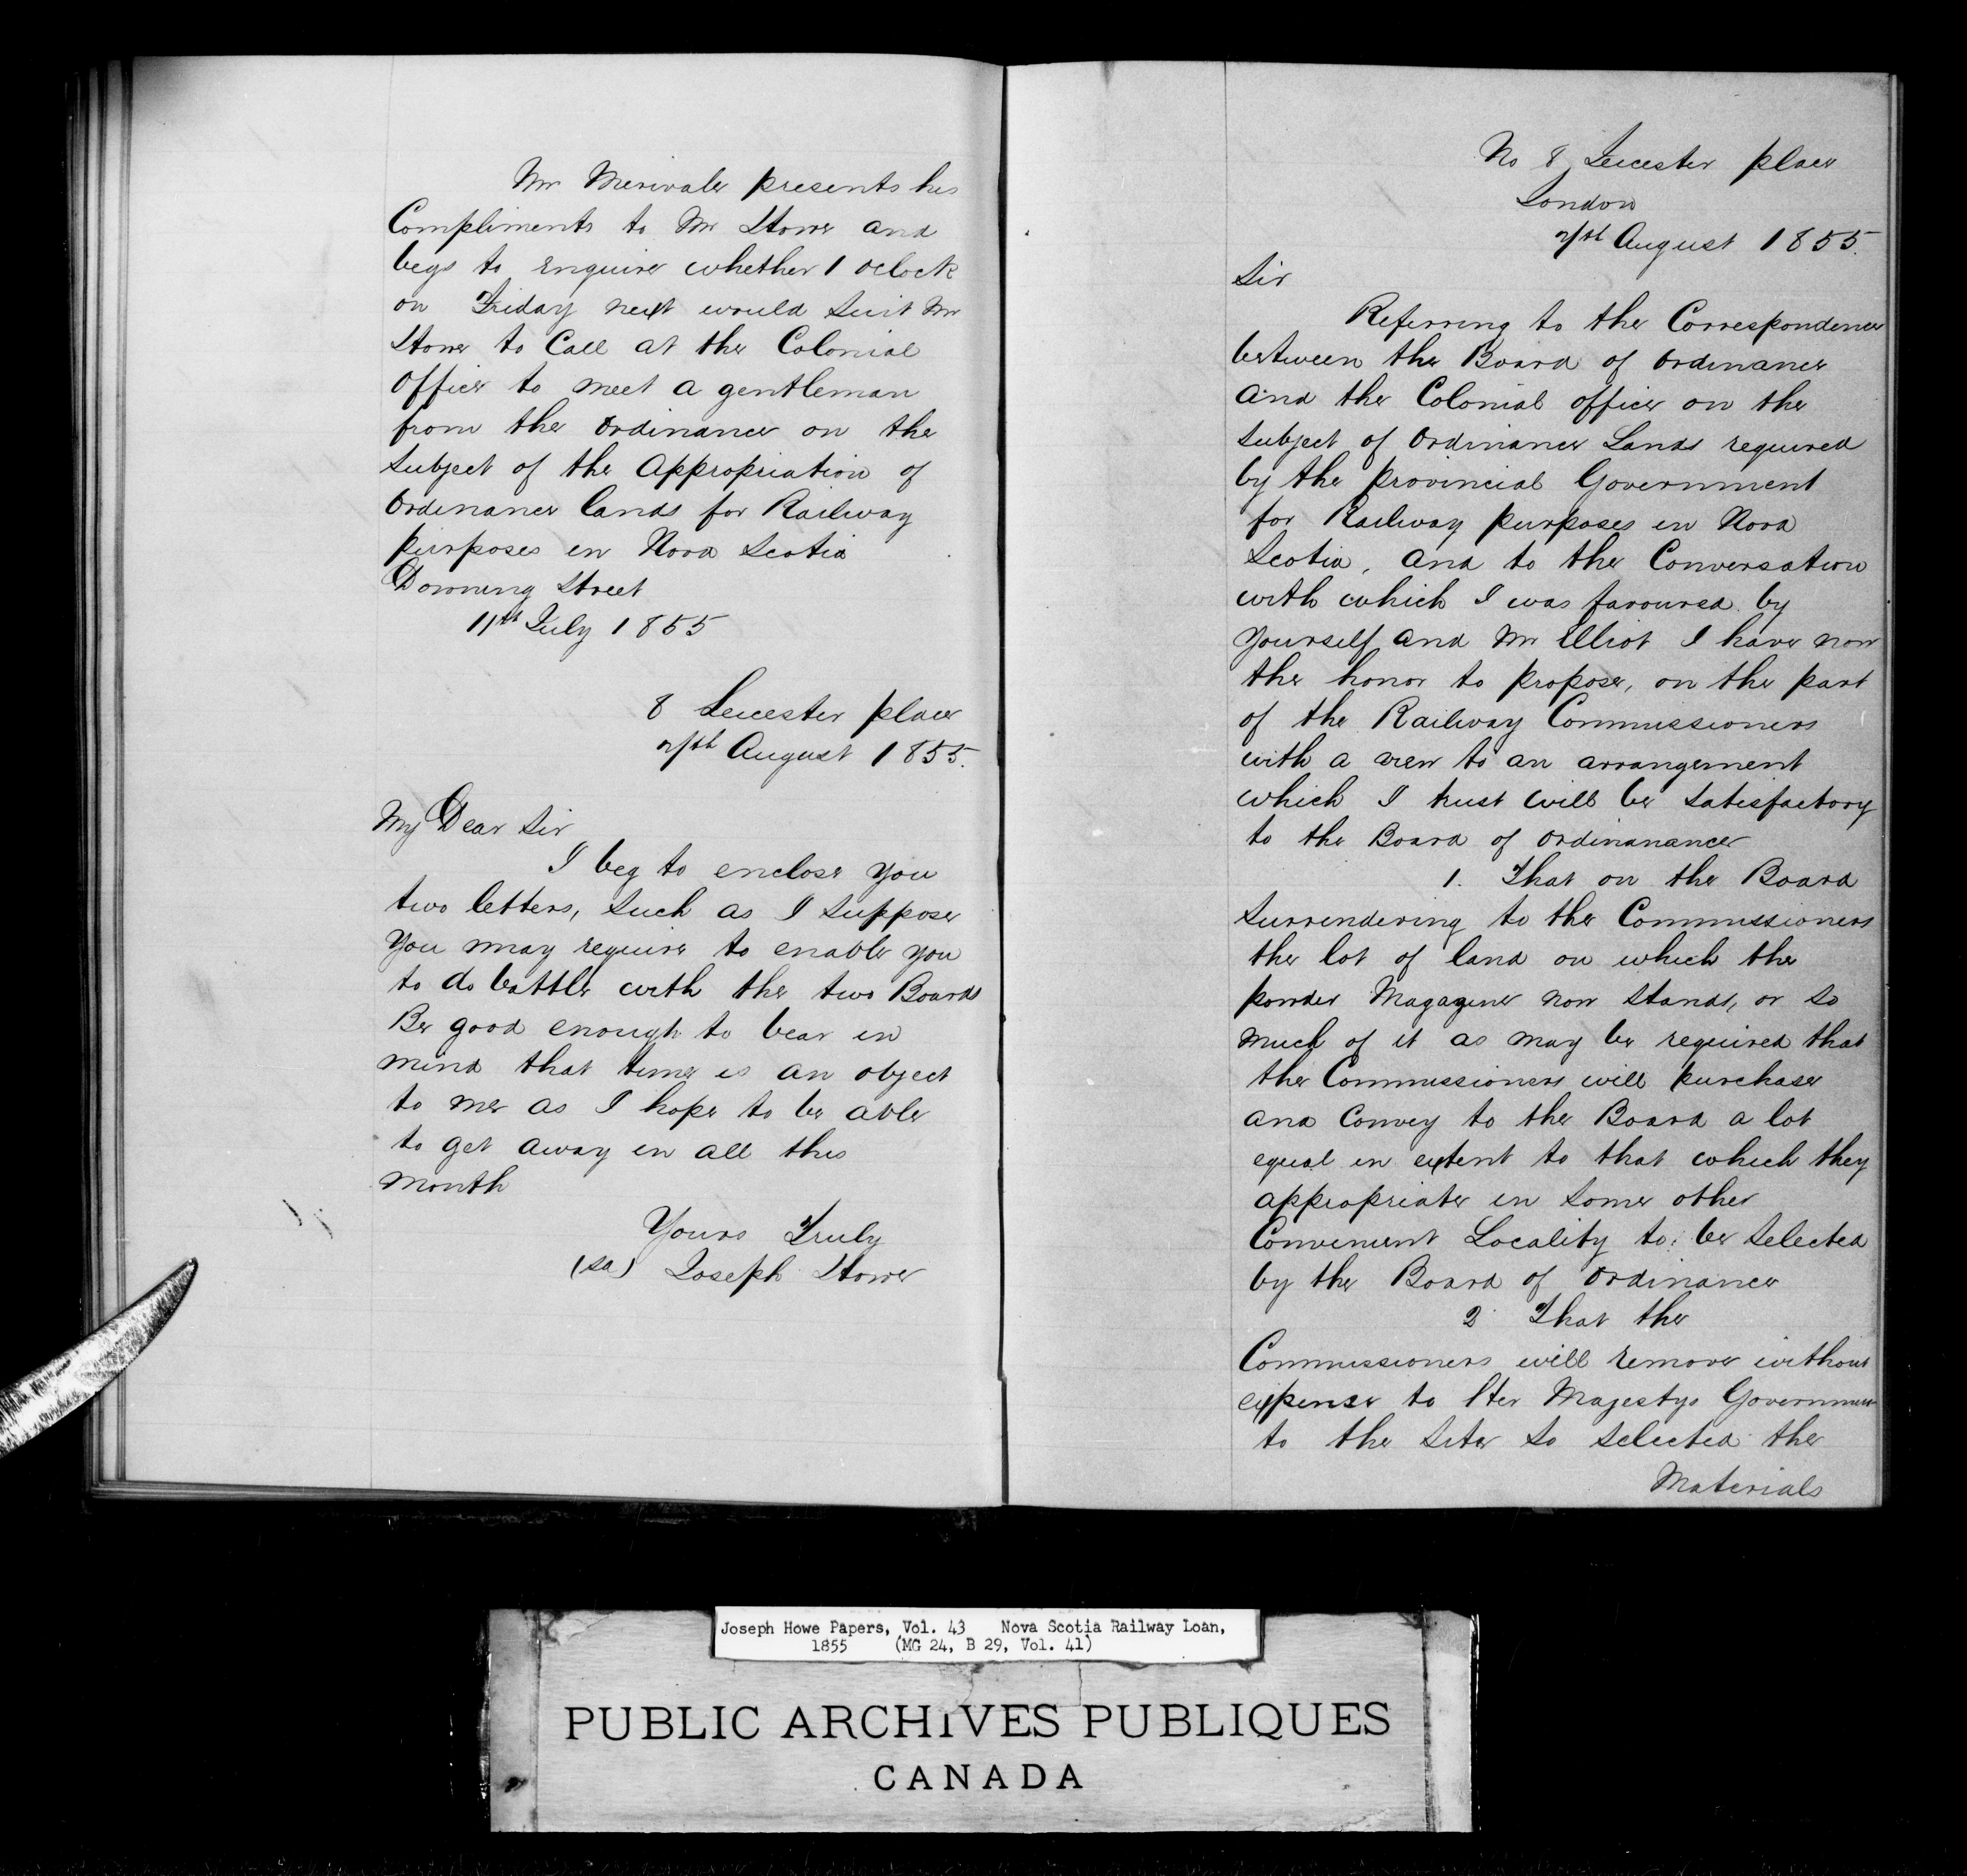 Mr Merivale presents his
Compliments to Mr Howe and
begs to enquire whether 1 oclock
on Friday next would Suit Mr
Howe to Call at the Colonial
Office to meet a gentleman
from the Ordinance on the
Subject of the Appropriation of
Ordinance lands for Railway
purposes in Nova Scotia
Downing Street
11th July 1855
8 Leicester place
7th August 1855.
My Dear Sir
I beg to enclose you
two letters, Such as I Suppose
you may require to enable you
to do battle with the two Boards
Be good enough to bear in
mind that time is an object
to me as I hope to be able
to get away in all this
month
Yours Truly
(sd) Joseph Howe
No 8 Leicester place
London
7th August 1855.
Sir
Referring to the Correspondence
between the Board of Ordinance
and the Colonial office on the
Subject of Ordinance Lands required
by the provincial Government
for Railway purposes in Nova
Scotia, and to the Conversation
with which I was favoured by
yourself and Mr Elliot I have now
the honor to propose, on the part
of the Railway Commissioners
with a view to an arrangement
which I trust will be Satisfactory
to the Board of Ordinanance
1. That on the Board
Surrendering to the Commissioners
the lot of land on which the
powder Magazine now Stands, or So
much of it as may be required that
the Commissioners will purchase
and Convey to the Board a lot
equal in extent to that which they
appropriate in Some other
Convenient Locality to be Selected
by the Board of Ordinance
2 That the
Commissioners will remove without
expense to Her Majestys Government
to the Site So Selected the
Materials
Joseph Howe Papers, Vol. 43 Nova Scotia Railway Loan,
1855 (MG 24, B 29, Vol. 41)
PUBLIC ARCHIVES PUBLIQUES
CANADA